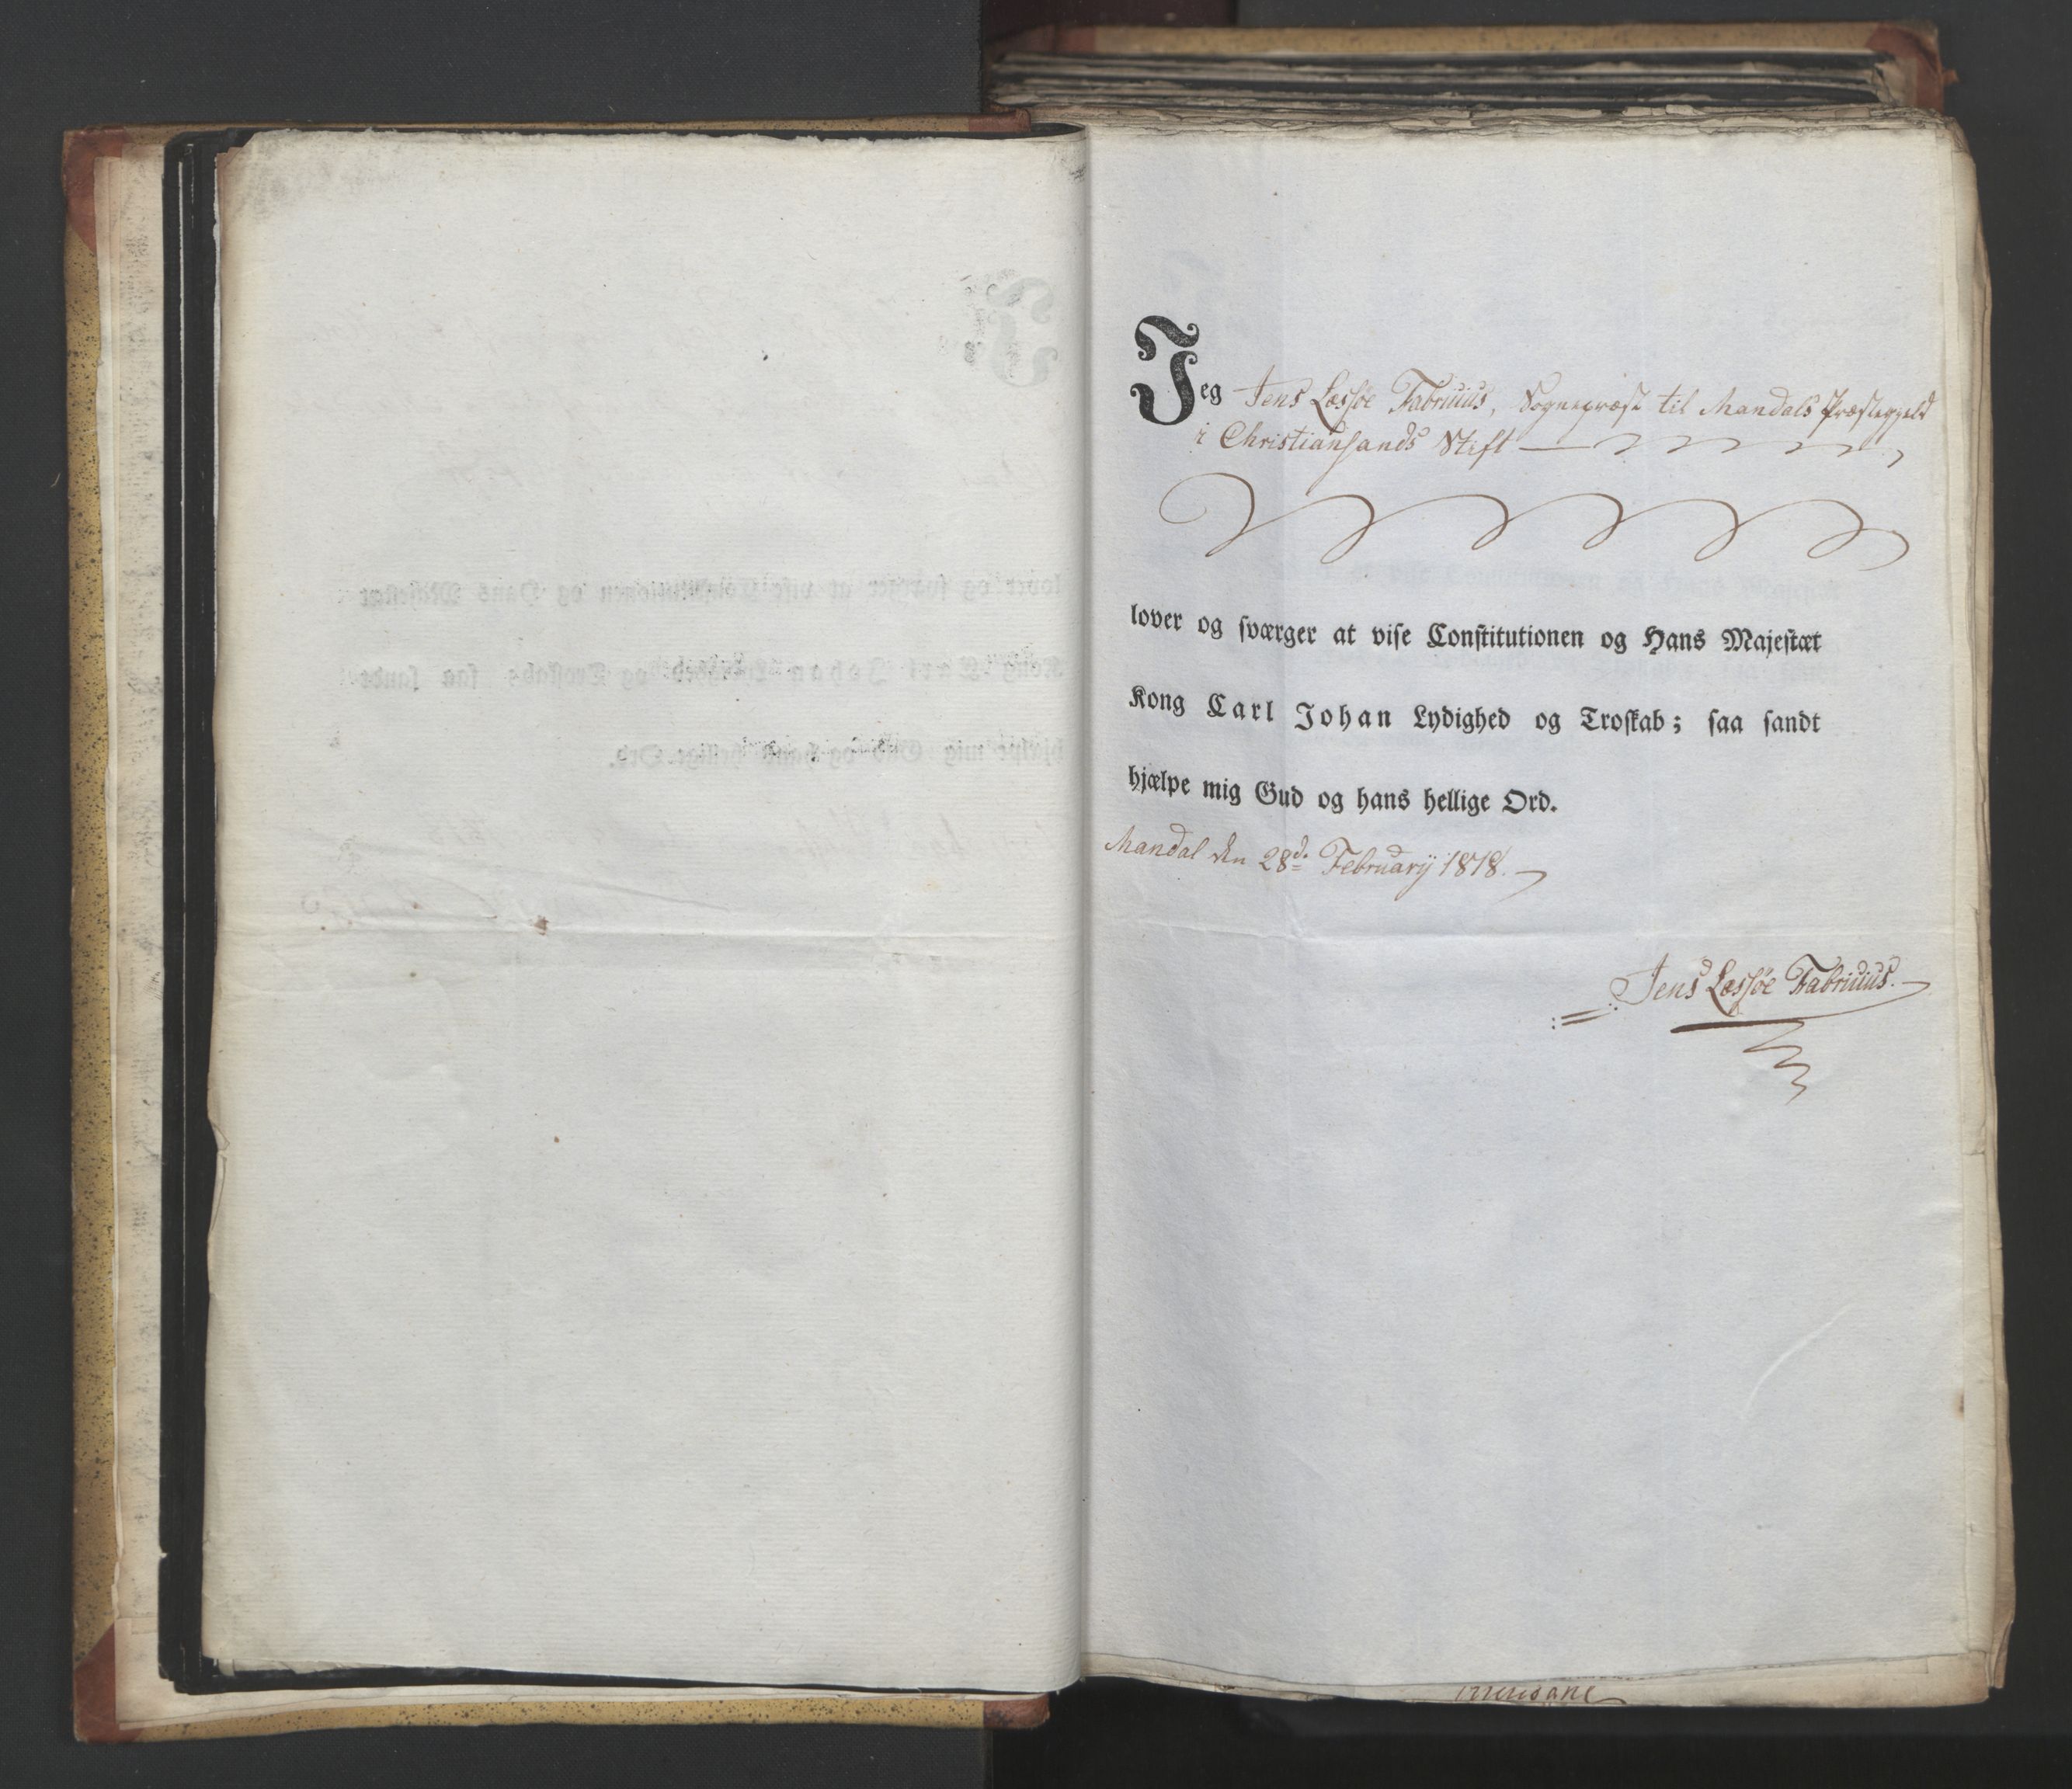 Jeg Jens Læssøe Fabriuius, Sognepræst til Mandals Præstegjeld
i Christiansands Stift
lover og sværger at vise Constitutionen og Hans Majestæt
Kong Carl Johan Lydighed og Troskab; saa sandt
hjælpe mig Gud og hans hellige Ord.
Mandal den 28d. Februarij 1818.
Jens Læssøe Fabriuius.